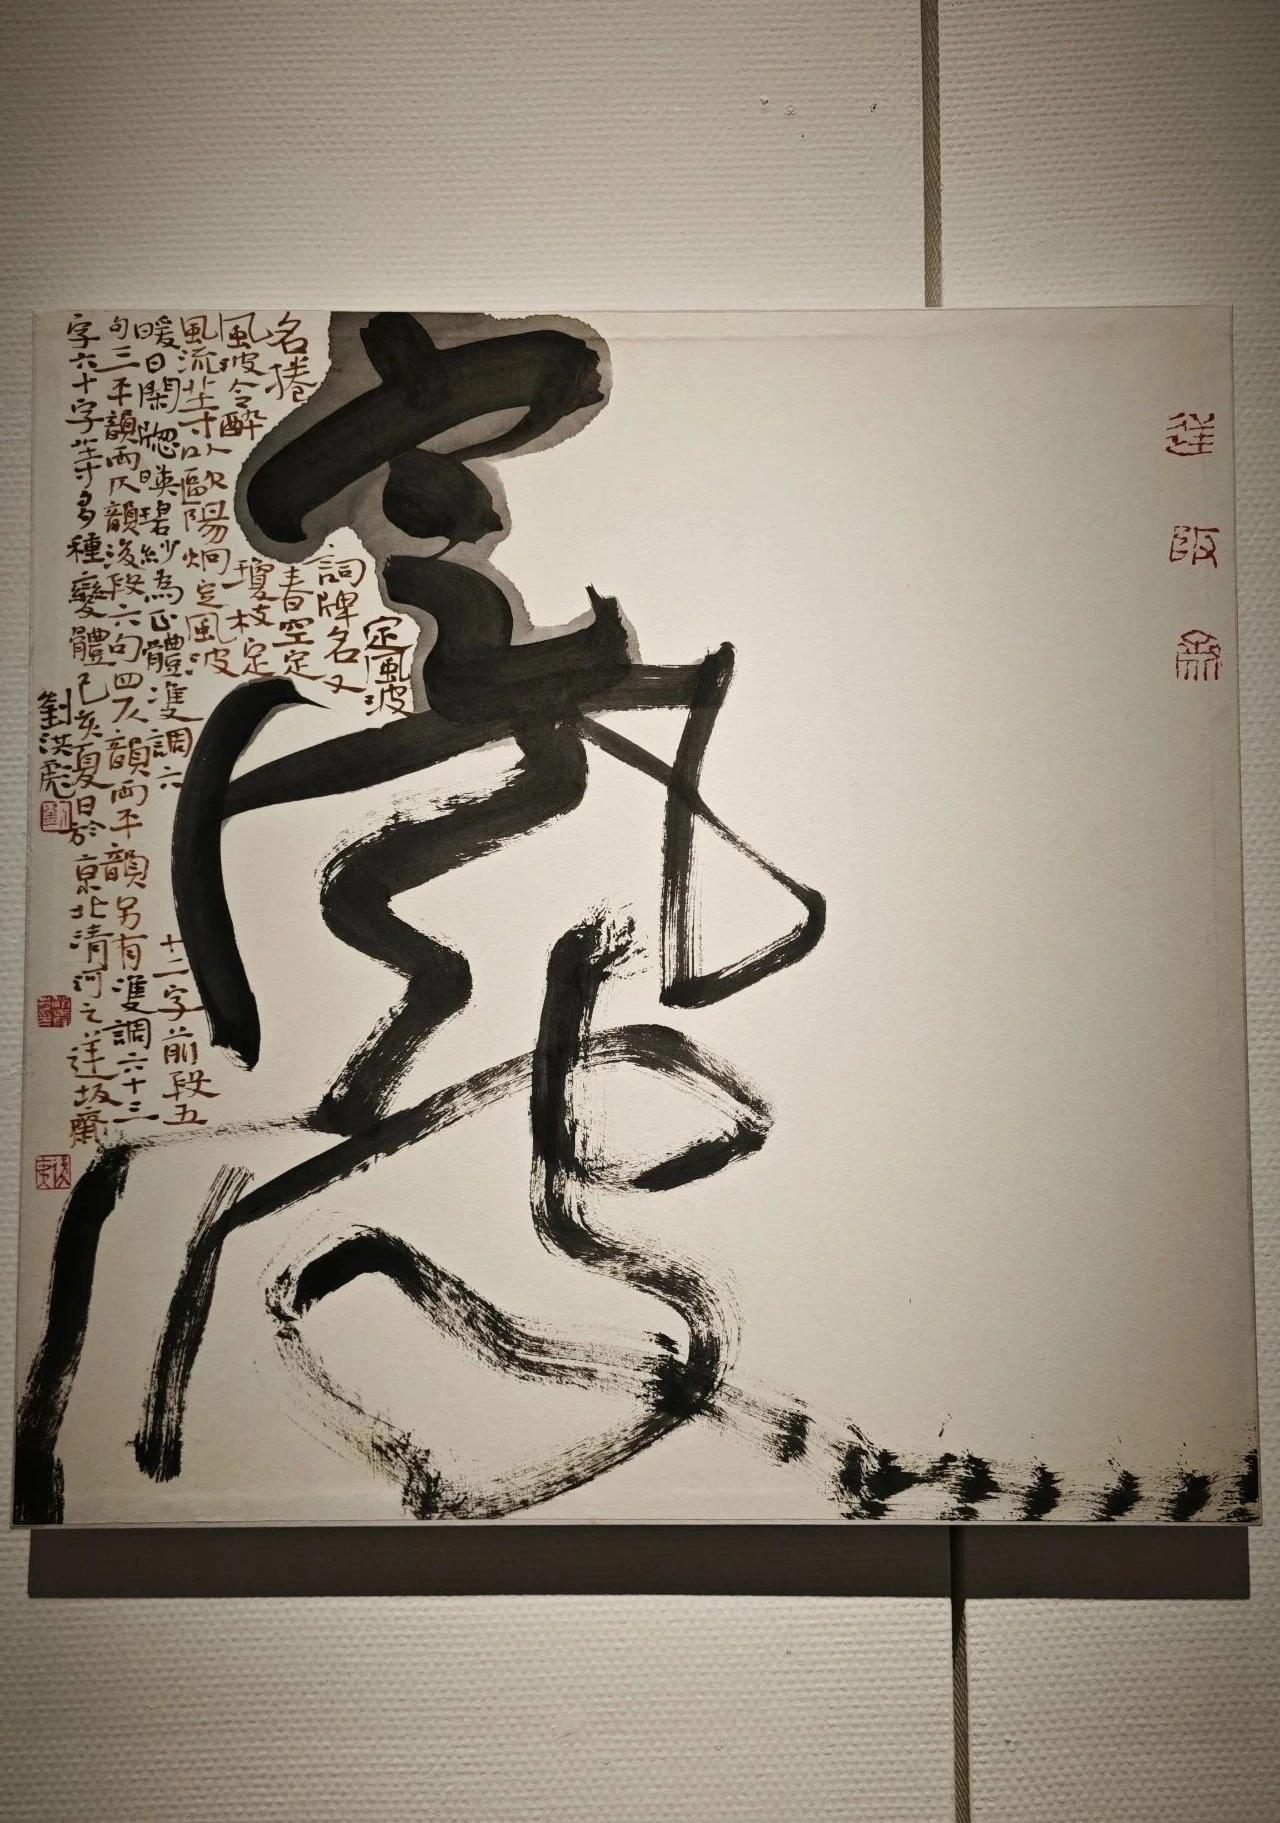 定風波
定風波
詞牌名又
名捲春空定
風波令醉瓊枝定
風流等以歐陽炯定風波
暖日閑牕映碧紗為正體雙調六
十二字前段五
句三平韻兩仄韻後段六句四仄韻兩平韻另有雙調六十三
字六十字等多種變體己亥夏日於京北清河之逆坂齋
劉洪彪
劉